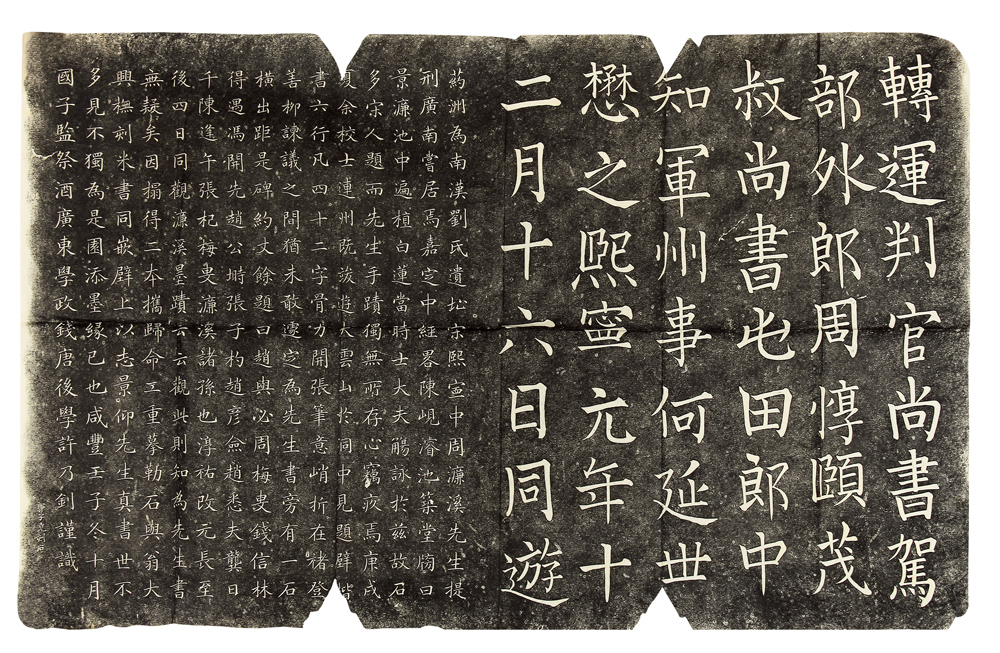 轉運判官尚書駕
部外郎周惇頤茂
叔尚書屯田郎中
知軍州事何延世
懋之熙寧元年十
二月十六日同遊
葯洲為南漢劉氏遺址宋熙寧中周濂溪先生提
刑廣南嘗居焉嘉定中經畧陳峴濬池築堂牓曰
景濂池中遍植白蓮當時士大夫觴詠於兹故石
多宋人題而先生手蹟獨無所存心竊疚焉庚戌
夏余校士連州既泼遊大雲山於同中見題壁
書六行凡四十二字骨力開張筆意峭折在褚登
善柳諫議之間猶未敢遽定為先生書旁有一石
橫出距是碑約丈餘題曰趙與必周梅叟錢信林
得遇馮開先趙公塒張子杓趙彥僉趙悉夫龔日
千陳逢午張杞梅叟濂溪諸孫也淳祐改元長至
後四日同觀濂溪墨蹟云云觀此則知為先生書
無疑矣因搨得二本攜歸命工重摹勒石與翁大
興橅刻米書同嵌壁上以志景仰先生真書世不
多見不獨為是園添墨緣已也咸豐壬子冬十月
國子監祭酒廣東學政錢唐後學許乃釗謹識